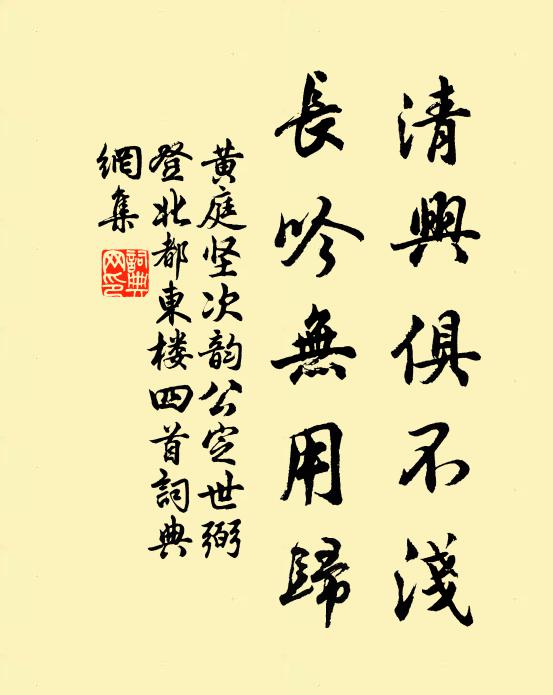 清興俱不淺
長吟無用歸
黄庭坚次韵公定世弼
登北都東楼四首詞典
網集
詞典
网印